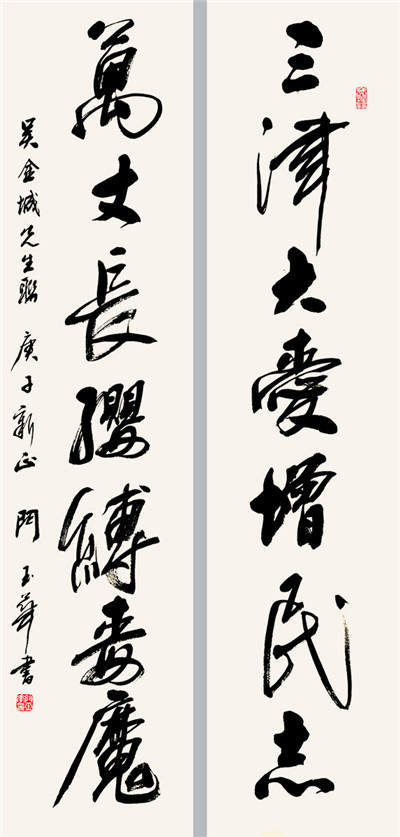 三津大愛增民志
萬丈長纓縛毒魔
吴金城先生聯 庚子新正 門玉華書